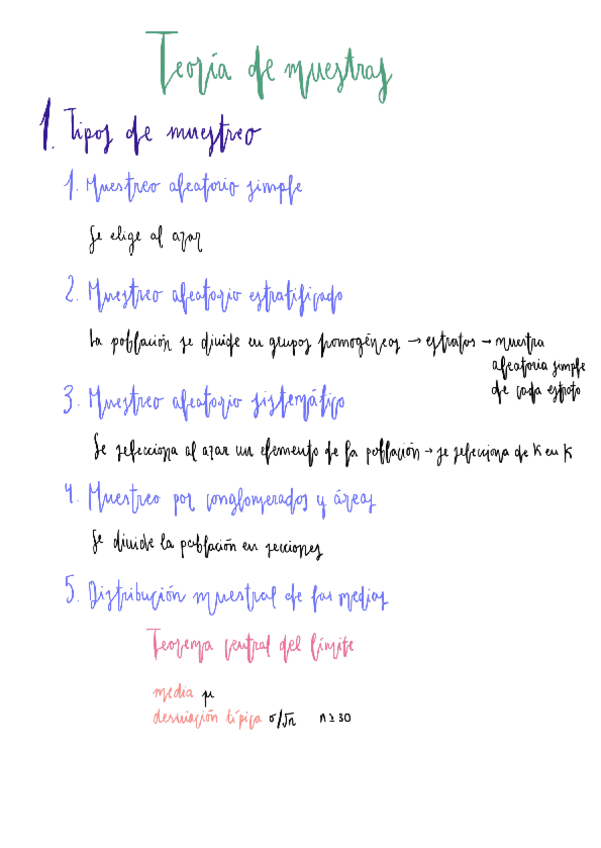 Teoría de muestras
1. Tipos de muestreo
1. Muestreo aleatorio simple
Se elige al azar
2. Muestreo aleatorio estratificado
La población se divide en grupos homogéneos → estratos → muestra
aleatoria simple
de cada estrato
3. Muestreo aleatorio sistemático
Se selecciona al azar un elemento de la población → se selecciona de K en K
4. Muestreo por conglomerados y áreas
Se divide la población en secciones
5. Distribución muestral de las medias
Teorema central del límite
media μ
desviación típica σ/√n n ≥ 30